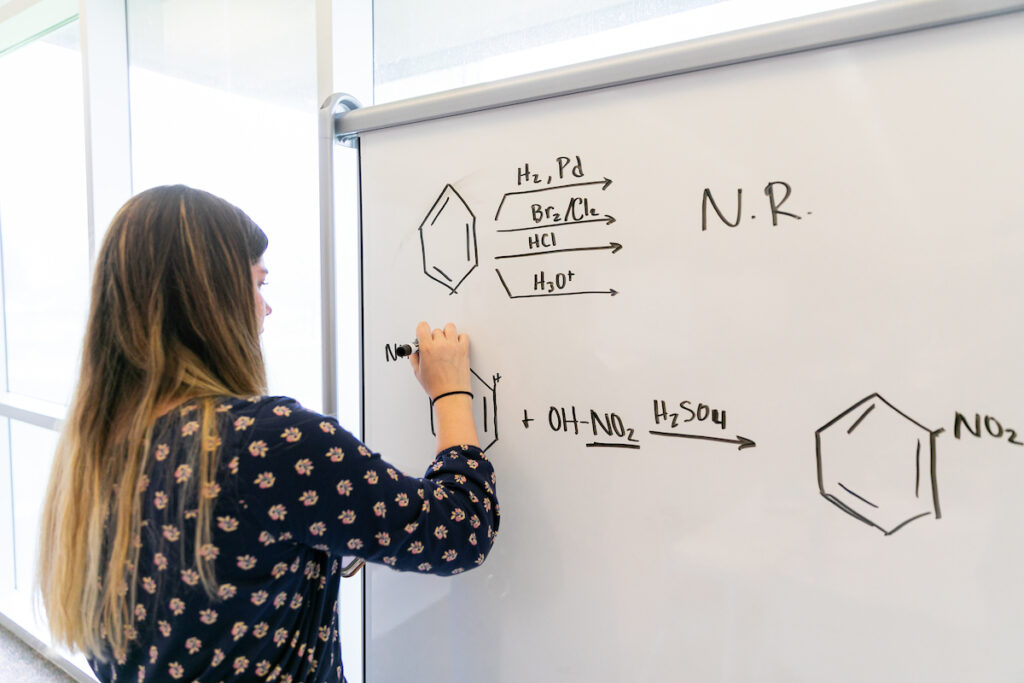 H₂, Pd
Br₂/Cl₂ N.R.
HCl
H₃O⁺
N
H
+ OH-NO₂ H₂SO₄ NO₂